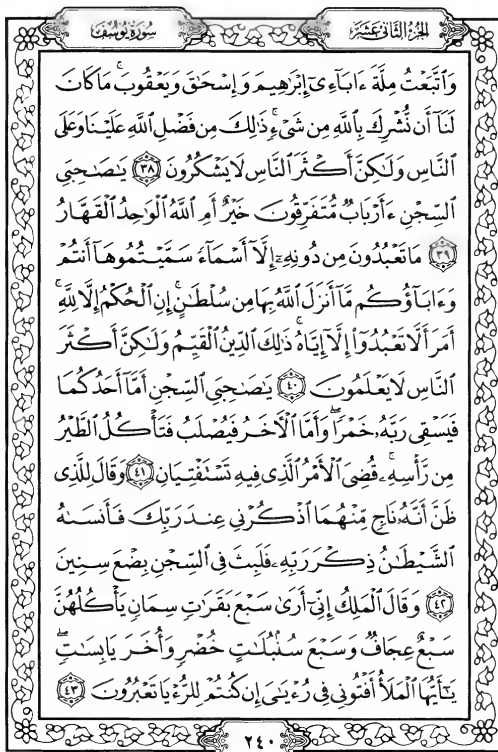 سُورَةُ يُوسُفَ
الجُزْءُ الثَّانِي عَشَرَ
وَٱتَّبَعْتُ مِلَّةَ ءَابَآءِىٓ إِبْرَٰهِيمَ وَإِسْحَٰقَ وَيَعْقُوبَ ۚ مَا كَانَ
لَنَآ أَن نُّشْرِكَ بِٱللَّهِ مِن شَىْءٍ ۚ ذَٰلِكَ مِن فَضْلِ ٱللَّهِ عَلَيْنَا وَعَلَى
ٱلنَّاسِ وَلَٰكِنَّ أَكْثَرَ ٱلنَّاسِ لَا يَشْكُرُونَ ٣٨ يَٰصَٰحِبَىِ
ٱلسِّجْنِ ءَأَرْبَابٌ مُّتَفَرِّقُونَ خَيْرٌ أَمِ ٱللَّهُ ٱلْوَٰحِدُ ٱلْقَهَّارُ
٣٩ مَا تَعْبُدُونَ مِن دُونِهِۦٓ إِلَّآ أَسْمَآءً سَمَّيْتُمُوهَآ أَنتُمْ
وَءَابَآؤُكُم مَّآ أَنزَلَ ٱللَّهُ بِهَا مِن سُلْطَٰنٍ ۚ إِنِ ٱلْحُكْمُ إِلَّا لِلَّهِ ۚ
أَمَرَ أَلَّا تَعْبُدُوٓا۟ إِلَّآ إِيَّاهُ ۚ ذَٰلِكَ ٱلدِّينُ ٱلْقَيِّمُ وَلَٰكِنَّ أَكْثَرَ
ٱلنَّاسِ لَا يَعْلَمُونَ ٤٠ يَٰصَٰحِبَىِ ٱلسِّجْنِ أَمَّآ أَحَدُكُمَا
فَيَسْقِى رَبَّهُۥ خَمْرًا ۖ وَأَمَّا ٱلْءَاخَرُ فَيُصْلَبُ فَتَأْكُلُ ٱلطَّيْرُ
مِن رَّأْسِهِۦ ۚ قُضِىَ ٱلْأَمْرُ ٱلَّذِى فِيهِ تَسْتَفْتِيَانِ ٤١ وَقَالَ لِلَّذِى
ظَنَّ أَنَّهُۥ نَاجٍ مِّنْهُمَا ٱذْكُرْنِى عِندَ رَبِّكَ فَأَنسَىٰهُ
ٱلشَّيْطَٰنُ ذِكْرَ رَبِّهِۦ فَلَبِثَ فِى ٱلسِّجْنِ بِضْعَ سِنِينَ
٤٢ وَقَالَ ٱلْمَلِكُ إِنِّىٓ أَرَىٰ سَبْعَ بَقَرَٰتٍ سِمَانٍ يَأْكُلُهُنَّ
سَبْعٌ عِجَافٌ وَسَبْعَ سُنۢبُلَٰتٍ خُضْرٍ وَأُخَرَ يَابِسَٰتٍ ۖ
يَٰٓأَيُّهَا ٱلْمَلَأُ أَفْتُونِى فِى رُءْيَٰىَ إِن كُنتُمْ لِلرُّءْيَا تَعْبُرُونَ ٤٣
٢٤٠